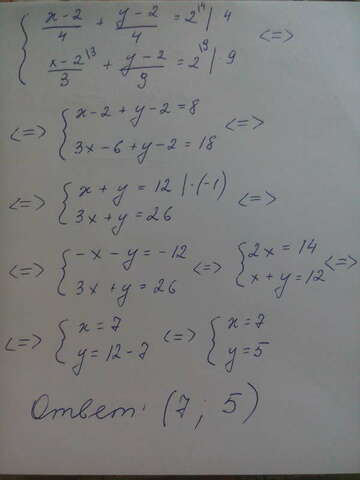 { (x-2)/4 + (y-2)/4 = 2^{\4} | 4 <=>
{ (x-2)^{\3}/3 + (y-2)/9 = 2^{\9} | 9
<=> { x-2+y-2=8 <=>
{ 3x-6+y-2=18
<=> { x+y=12 |·(-1) <=>
{ 3x+y=26
<=> { -x-y=-12 <=> { 2x=14 <=>
{ 3x+y=26 { x+y=12
<=> { x=7 <=> { x=7
{ y=12-7 { y=5
Ответ: (7; 5)